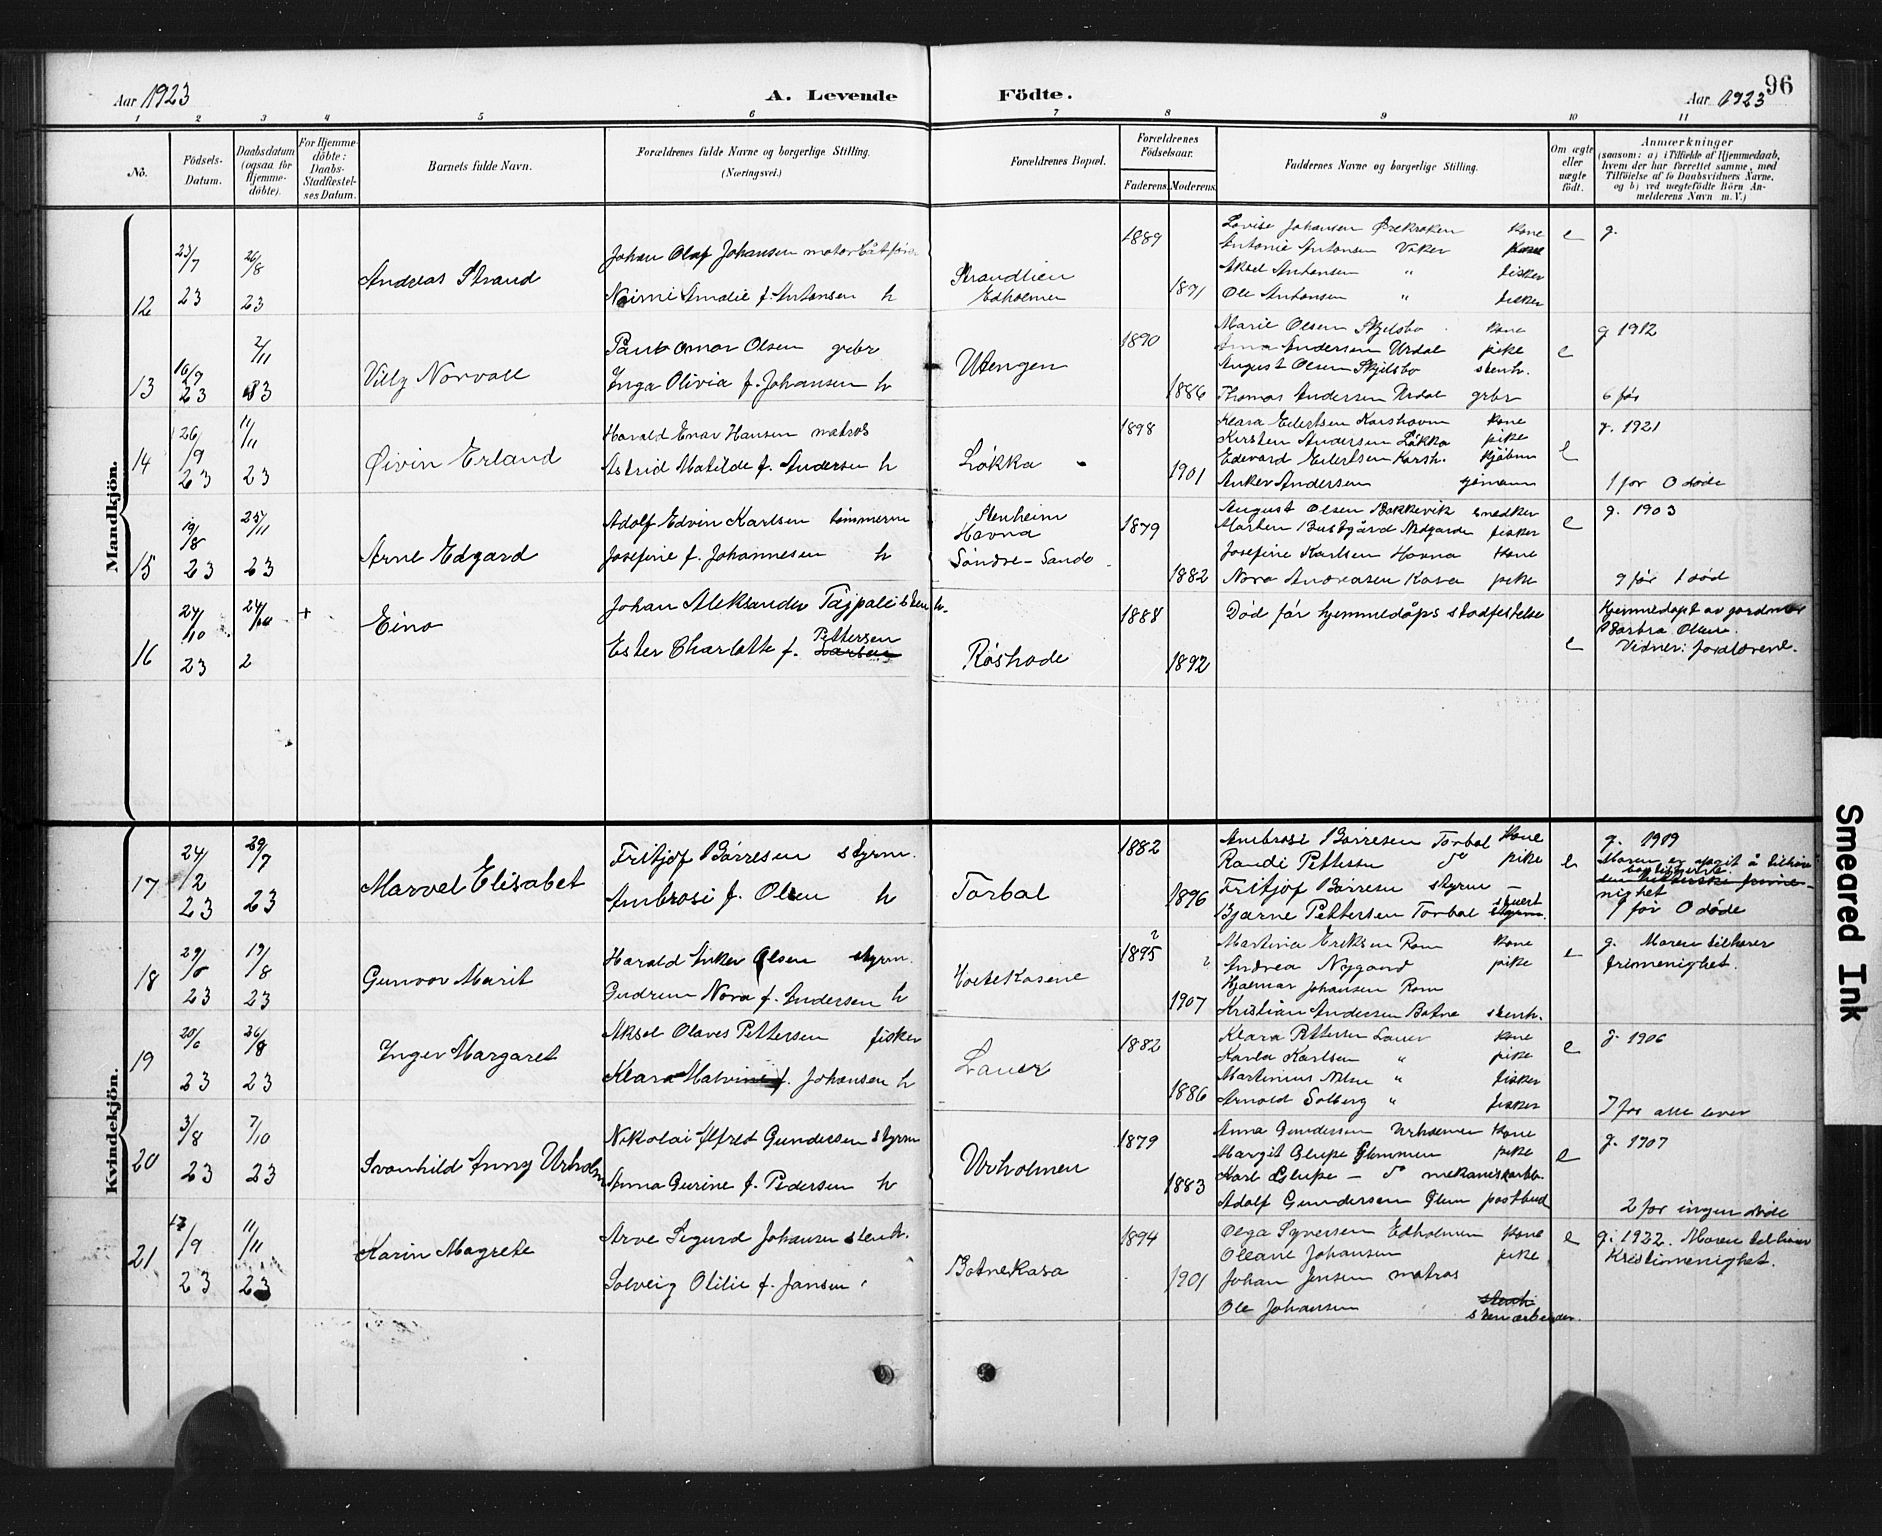 Aar 1923
A. Levende
Födte.
Aar 1923
96
1 2 3 4 5 6 7 8 9 10 11
No.
Födsels-
Datum.
Daabsdatum
(ogsaa for
Hjemme-
döbte).
For Hjemme-
döbte:
Daabs-
Stadfæstel-
ses Datum.
Barnets fulde Navn.
Forældrenes fulde Navne og borgerlige Stilling.
(Næringsvei.)
Forældrenes Bopæl.
Forældrenes
Födselsaar.
Faderens. Moderens.
Faddernes Navne og borgerlige Stilling.
Om ægte
eller
uægte
födt.
Anmærkninger
(saasom: a) i Tilfælde af Hjemmedaab,
hvem der har forrettet samme, med
Tilföielse af to Daabsvidners Navne,
og b) ved uægtefödte Börn An-
melderens Navn m. V.)
Mandkjön.
12
23/7
23
26/8
23
Andreas Strand
Johan Olaf Johansen
Amalie f. Antonsen h
Strandlien
Edholmen
1889
1891
Lovise Johansen kone
Antonie Antonsen kone
Aksel Antonsen " fisker
Ole Antonsen " fisker
e
g.
13
16/9
23
2/11
Villy Norvall
Omar Olsen grbr
Inga Olivia f. Johansen h
Utengen
1890
1886
Marie Olsen Skjelsbo kone
Andersen Urdal pike
August Olsen Skjelsbo stenh.
Thomas Andersen Urdal grbr
e
g 1912
6 før
14
26/9
23
11/11
23
Øivin Erland
Harald Enar Hansen matros
Astrid Matilde f. Andersen h
Løkka
1898
1901
Klara Eilertsen kone
Kirsten Andersen Løkka pike
Edevard Eilertsen
Anker Andersen sjømann
e
g. 1921
1 før 0 døde
15
19/8
23
25/11
23
Arne Edgard
Adolf Edvin Karlsen tømmerm
Josefine f. Johannesen h
Stenheim
Havna
Søndre-Sando
1879
1882
August Olsen Bakkevik snedker
Morten fisker
Josefine Karlsen Havna kone
Nora Andreasen Kasa pike
e
g. 1903
9 før 1 død
16
24/10
23
+
Eino
Johan Aleksander stenh.
Ester Charlotte f. Pettersen
Røshode
1888
1892
Død før hjemmedåps stadfestelse
e
Hjemmedøpt av jordmor
Barbra Olsen.
Vidner: foreldrene.
Kvindekjön.
17
24/2
23
29/7
23
Marvel Elisabet
Fritjof Børresen styrm.
Ambrosi f. Olsen h
Torbal
1882
1896
Ambrosi Børresen Torbal kone
Randi Pettersen do pike
Fritjof Børresen styrm –
Bjarne Pettersen Torbal stuert
e
g. 1909
nighet
1 før 0 døde
18
29/5
23
19/8
23
Gunvor Marit
Harald Anker Olsen styrm.
Gudrun Nora f. Andersen h
1895
1907
Martina Eriksen Rom kone
Andrea Nygaard pike
Hjalmar Johansen Rom
Kristian Andersen Botne stenh.
e
g. Moren tilhører
frimenighet.
19
20/6
23
26/8
23
Inger Margaret
Aksel Olaves Pettersen fisker
Klara Malvine f. Johansen h
Lauer
1882
1886
Klara Pettersen Lauer kone
Karla Karlsen " pike
Martinius Nilsen " fisker
Arnold Solberg " fisker
e
g. 1906
7 før alle lever
20
3/8
23
7/10
23
Svanhild Anny Urholm
Nikolai Alfred Gundersen styrm
Anna Gurine f. Pedersen h
Urholmen
1879
1883
Anna Gundersen Urholmen kone
Margit Glupe Glemmen pike
Karl Glupe – do mekanisk arb.
Adolf Gundersen Glem postbud
e
g. 1907
2 før ingen døde
21
17/9
23
11/11
23
Karin Magrete
Arve Sigurd Johansen stenh.
Solveig Otilie f. Jansen
Botnekasa
1894
1901
Olga Syversen Edholmen kone
Oleane Johansen pike
Johan Jensen matros
Ole Johansen
stenarbeider.
e
g. 1922. Moren tilhører
Kristimenighet.
Smeared Ink